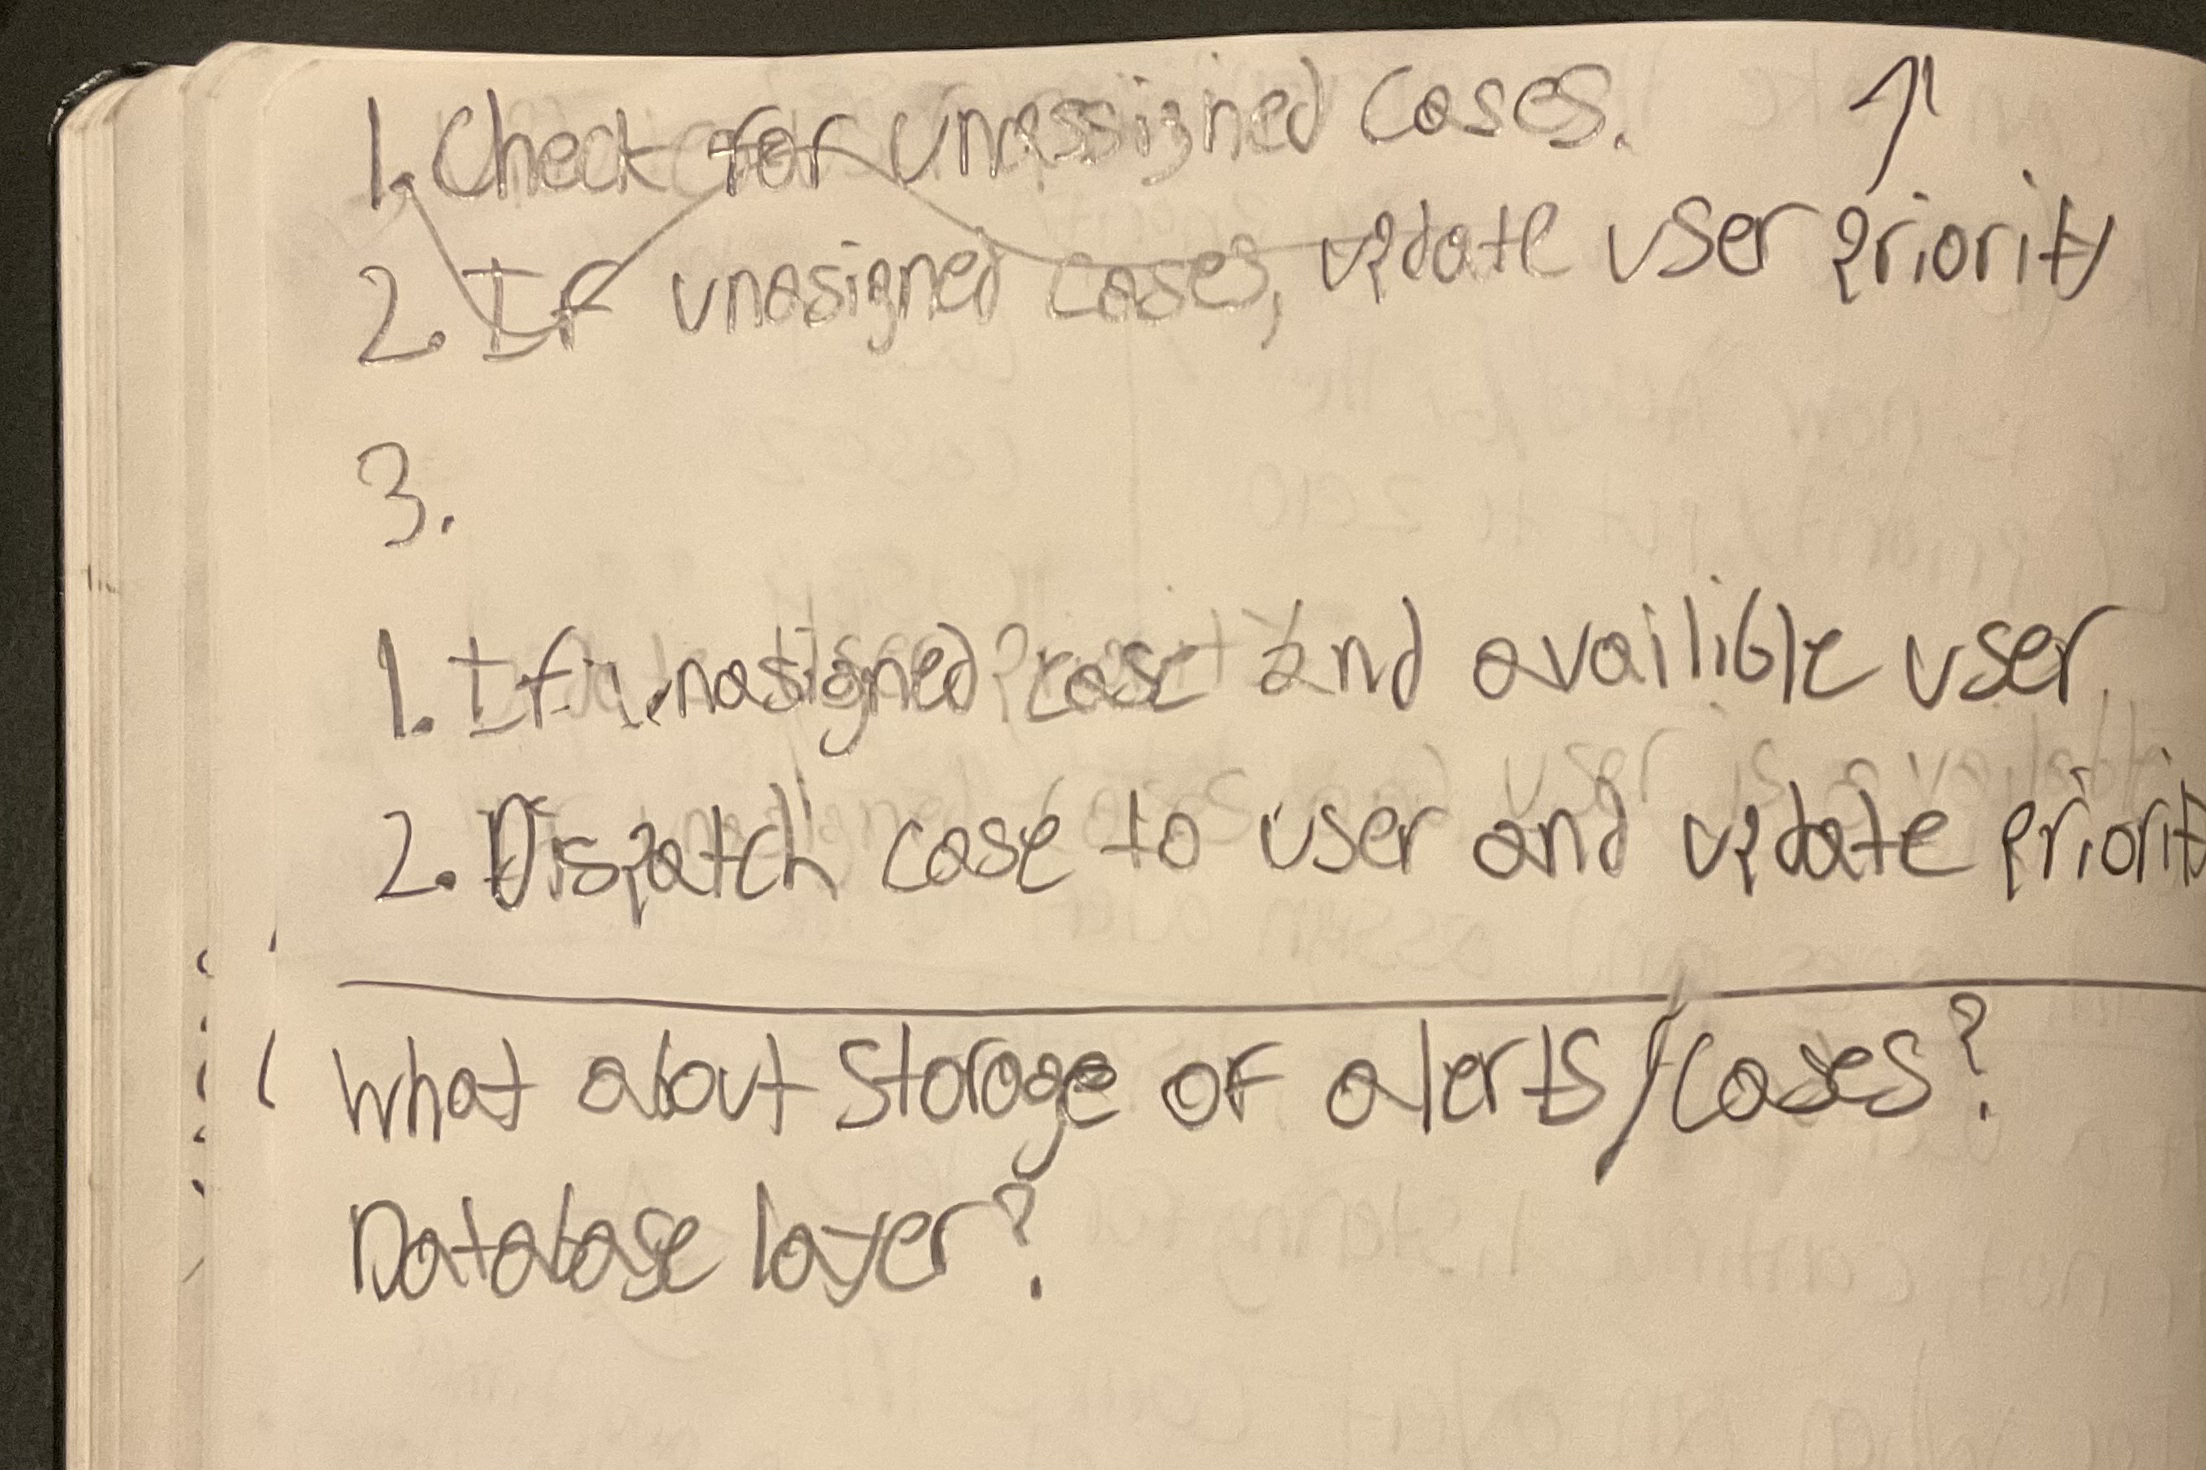 1. Check for unassigned cases.
2. If unasigned cases, update user priority
3.
1. If unasigned case and availible user
2. Dispatch case to user and update priority
What about storage of alerts/cases?
Database layer?